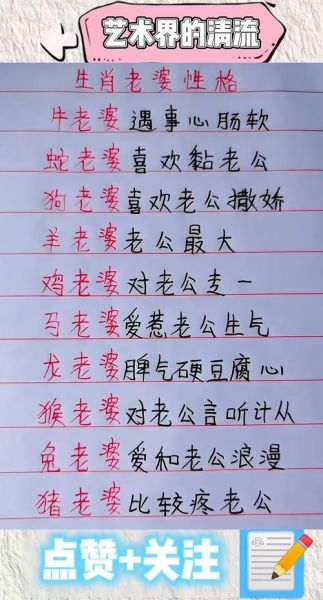 艺术界的清流
生肖老婆性格
牛老婆遇事心肠软
蛇老婆喜欢黏老公
狗老婆喜欢老公撒娇
羊老婆老公最大
鸡老婆对老公专一
马老婆爱惹老公生气
龙老婆脾气硬豆腐心
猴老婆对老公言听计从
兔老婆爱和老公浪漫
猪老婆比较疼老公
点赞+关注